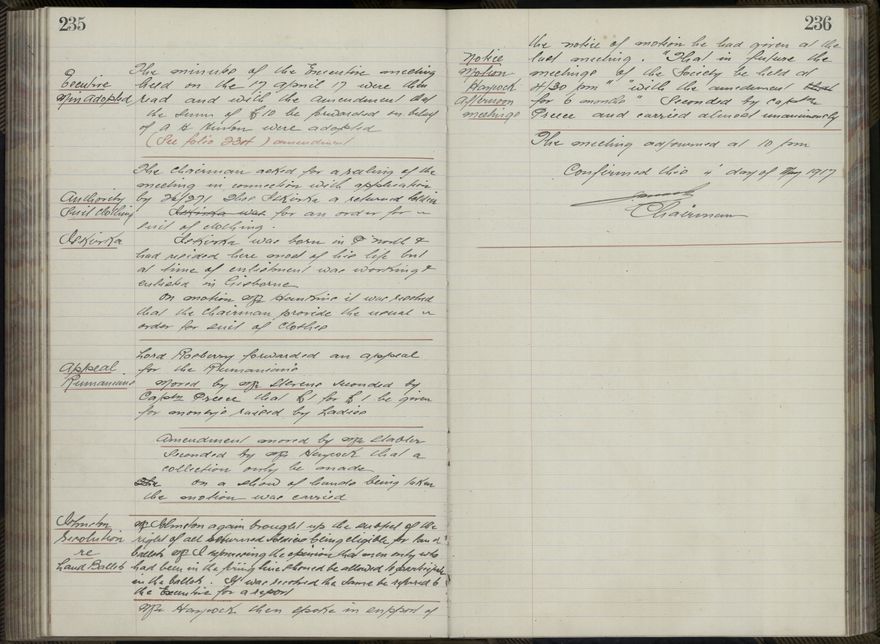 235
Executive
Min adopted
The minutes of the Executive meeting
held on the 17 April 17 were then
read and with the amendment that
the sum of £10 be forwarded on behalf
of a Hinton were adopted
(See folio 234) amendment
Authority
Suit clothing
The Chairman asked for a ruling of the
meeting in connection with application
by 26/271 Iskirka a returned soldier
Iskirka was for an order for a
suit of clothing.
Iskirka
Iskirka was born in P North &
had resided here most of his life but
at time of enlistment was working &
enlisted in Gisborne
On motion Mr Hawkins it was resolved
that the Chairman provide the usual
order for suit of Clothes
Appeal
Rumanians
Lord Rosberry forwarded an appeal
for the Rumanians
Moved by Mr Stevens seconded by
Captn Preece that £1 for £1 be given
for money's raised by Ladies
Amendment moved by Mr Stabler
Seconded by Mr Haycock that a
collection only be made
on a show of hands being taken
the motion was carried
Johnston
resolution
re
Land Ballots
Mr Johnston again brought up the subject of the
right of all returned soldiers being eligible for land
ballots Mr J expressing the opinion that men only who
had been in the firing line should be allowed to participate
in the ballots. It was resolved the same be referred to
the Executive for a report
Mr Haycock then spoke in support of
236
Notice
Motion
Haycock
afternoon
meetings
the notice of motion he had given at the
last meeting. "That in future the
meetings of the Society be held at
4/30 pm" with the amendment
for 6 months" Seconded by Captn
Preece and carried almost unanimously
The meeting adjourned at 10 pm
Confirmed this day of May 1917
Chairman